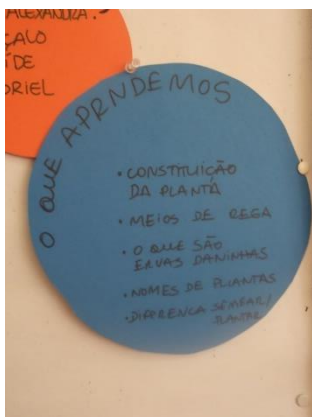 ALEXANDRA.
ÇALO
DE
RIEL
O QUE APRNDEMOS
• CONSTITUIÇÃO
DA PLANTA
• MEIOS DE REGA
• O QUE SÃO
ERVAS DANINHAS
• NOMES DE PLANTAS
• DIFERENÇA SEMEAR/
PLANTAR